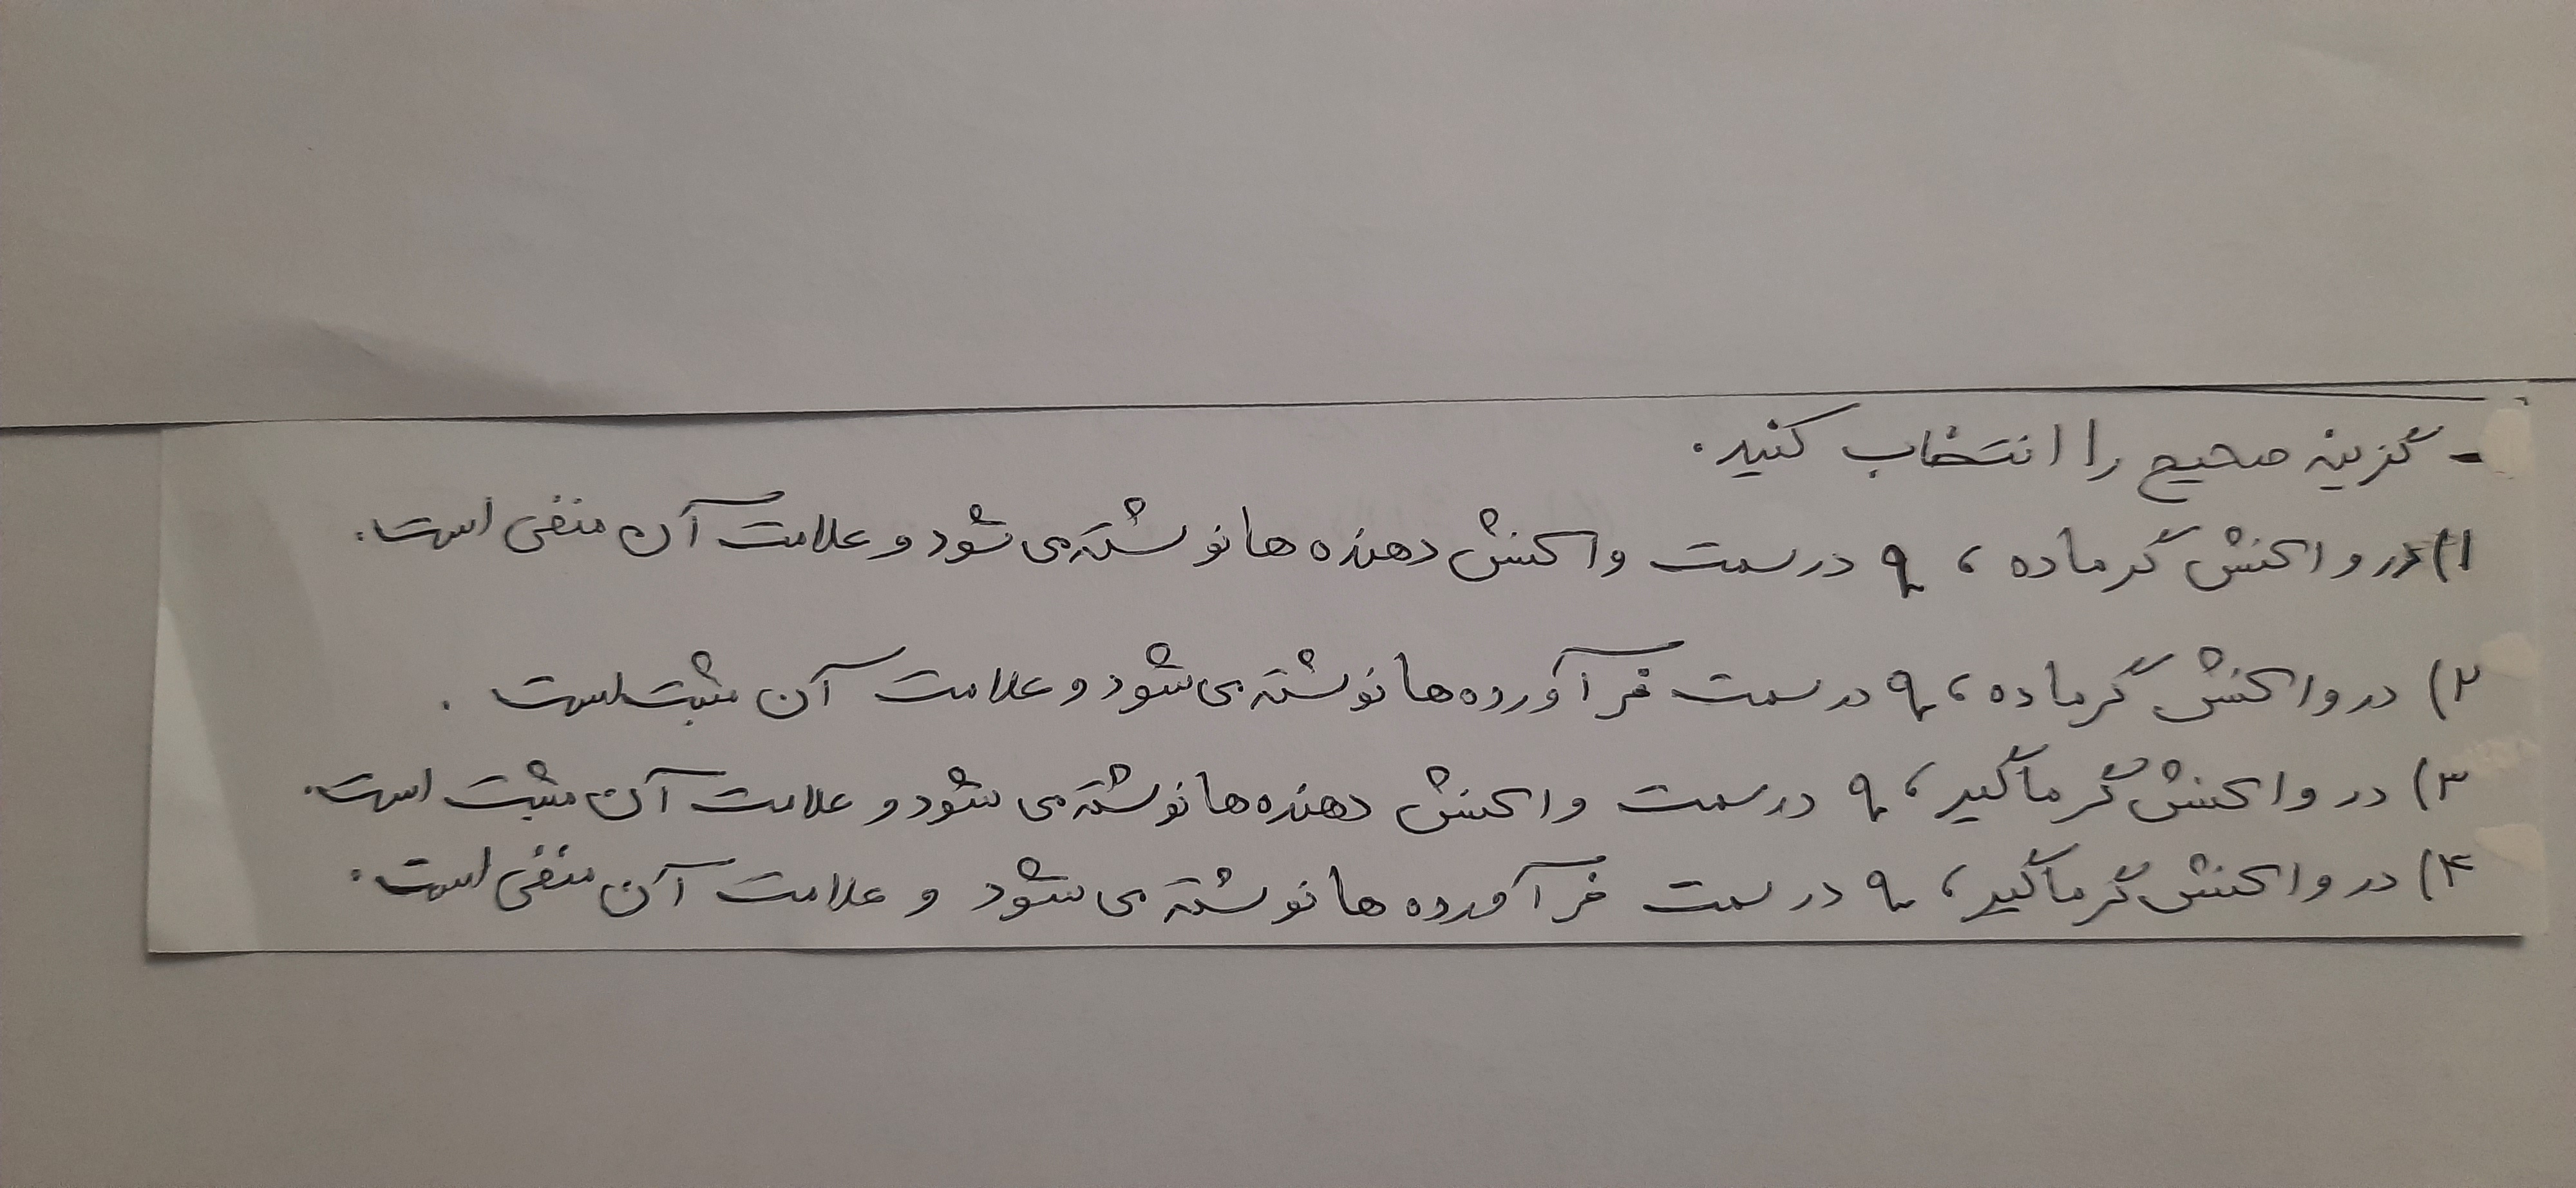 - گزینه صحیح را انتخاب کنید.
۱) در واکنش گرماده ، q در سمت واکنش دهنده ها نوشته می شود و علامت آن منفی است.
۲) در واکنش گرماده ، q در سمت فرآورده ها نوشته می شود و علامت آن مثبت است.
۳) در واکنش گرماگیر ، q در سمت واکنش دهنده ها نوشته می شود و علامت آن مثبت است.
۴) در واکنش گرماگیر ، q در سمت فرآورده ها نوشته می شود و علامت آن منفی است.